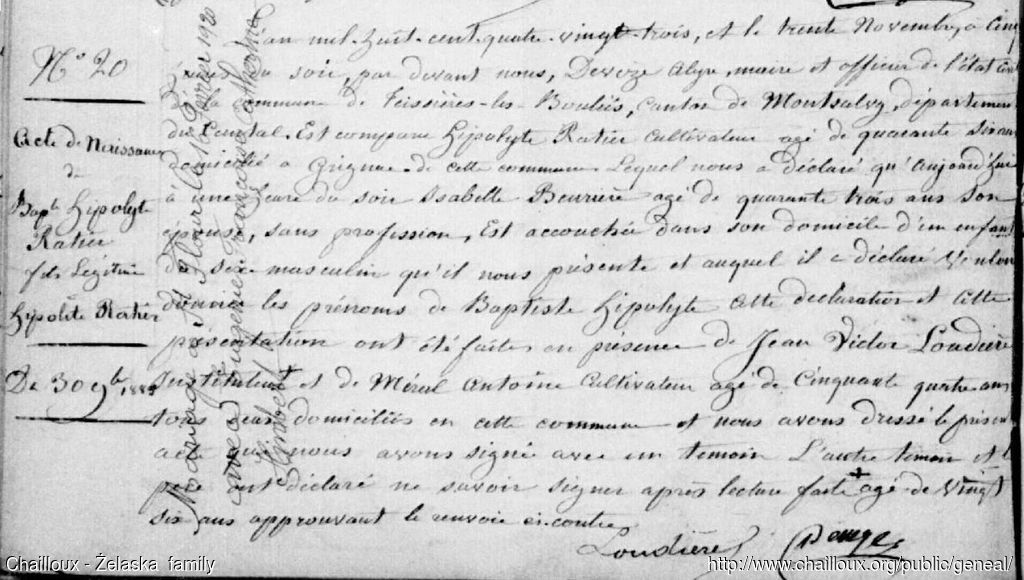 N° 20
Acte de Naissance
de
Bapte Hipolyte
Ratier
fils Légitime
Hypolite Ratier
Du 30 9bre 1883
an mil huit cent quatre vingt trois, et le trente Novembre, a Cinq
du soir, par devant nous, Devèze Alyre, maire et officier de l'état Civil
la commune de Teissières-les-Bouliès, Canton de Montsalvy, département
du Cantal. Est comparu Hipolyte Ratier Cultivateur agé de quarante six ans
domicilié a de cette commune Lequel nous a déclaré qu'aujourd'hui
à une heure du soir Isabelle Beurrière agé de quarante trois ans son
épouse, sans profession, Est accouchée dans son domicile d'un enfant
du sexe masculin qu'il nous présente et auquel il a déclaré vouloir
donner les prénoms de Baptiste Hipolyte Cette déclaration et Cette
présentation ont été faites en présence de Jean Victor Loudière
Instituteur et de Méral Antoine Cultivateur agé de Cinquante quatre ans
tous deux domiciliés en cette commune et nous avons dressé le présent
acte que nous avons signé avec un temoin L'autre temoin et le
père ont déclaré ne savoir signer après lecture faite + agé de Vingt
six ans approuvant le renvoie ci-contre
Loudière
Mariage a St Flour le 16 Février 1920
avec Eugenie Catherine
Chailloux - Żelaska family
http://www.chailloux.org/public/geneal/